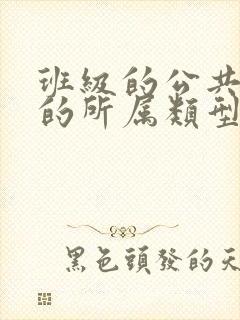 班級的公共
的所属類型
黑色頭發的天